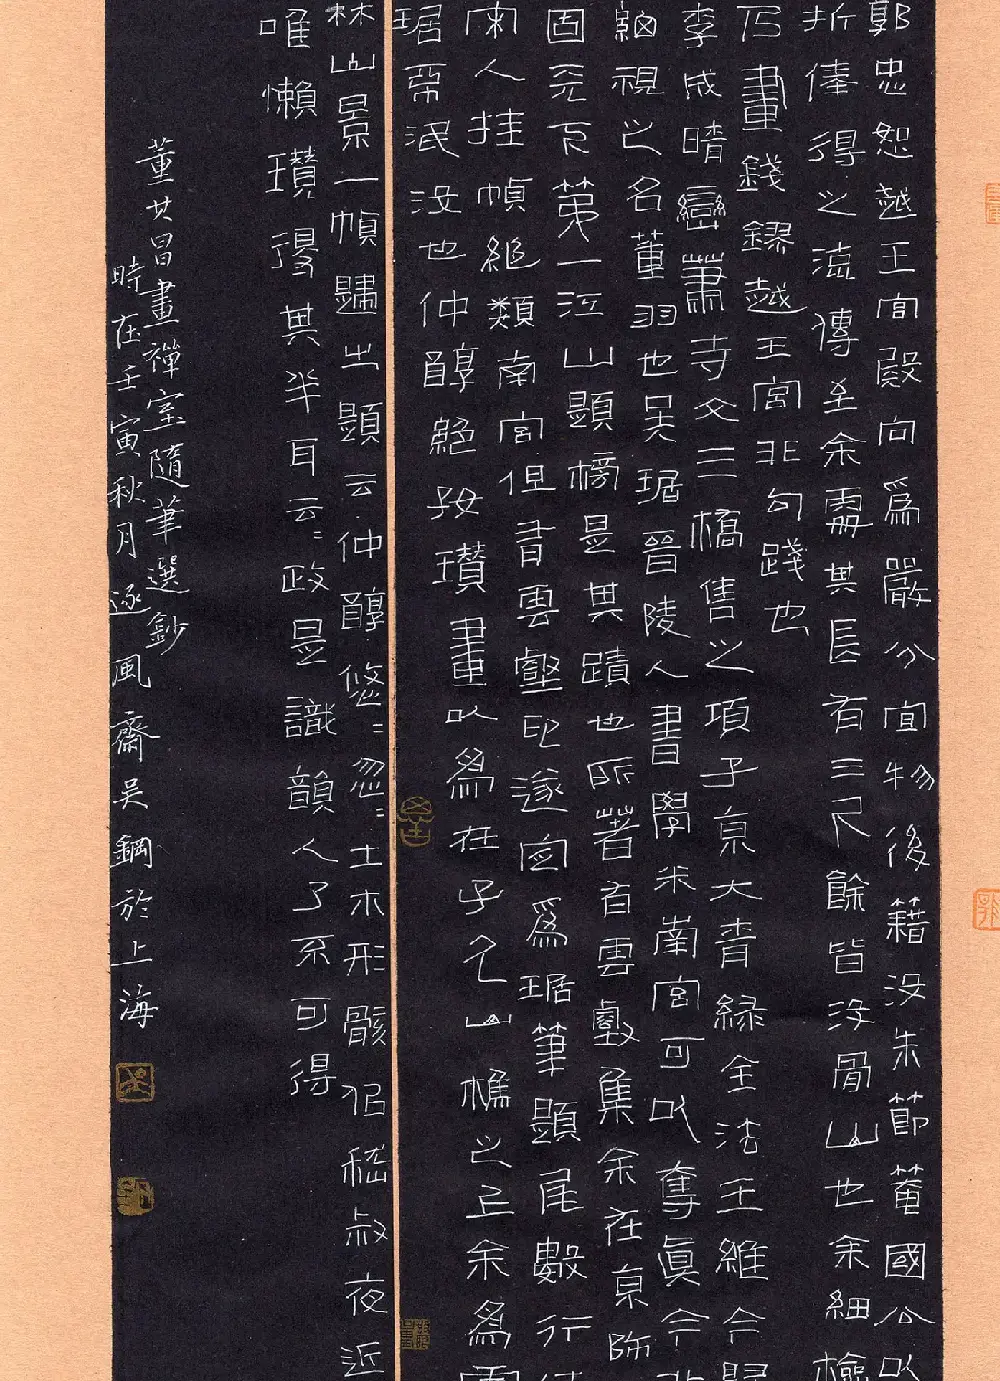 郭忠恕越王宮殿向為嚴分宜物後籍沒朱節菴國公以
折俸得之流傳至余處其長有三尺餘皆沒骨山也余細檢
乃畫錢鏐越王宮非勾踐也
李成晴巒蕭寺文三橋售之項子京大青綠全法王維今歸
細視之名董羽也吳琚晉陵人書學米南宮可以奪真今北
固天下第一江山題榜是其蹟也所著有雲壑集余在京師
南人挂幀絕類南宮但有雲壑印遂定為琚筆題尾數行
琚幾泯沒也仲醇絕好瓚畫以為在子久山樵之上余為雲
林山景一幀歸之題云仲醇悠〻忽〻土木形骸似嵇叔夜近
唯懶瓚得其半耳云〻政是識韻人了不可得
董其昌畫禪室隨筆選鈔
時在壬寅秋月逐風齋吳鋼於上海